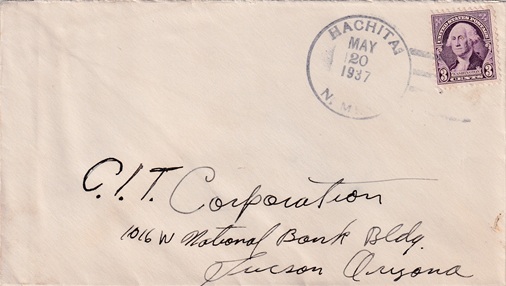 HACHITA
MAY
20
1937
N. MEX.
UNITED STATES POSTAGE
3 3
C.I.T. Corporation
1016 W National Bank Bldg.
Tucson Arizona